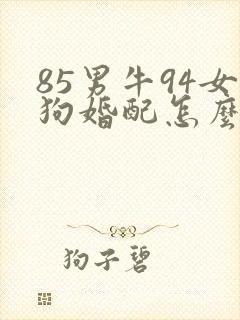 85男牛94女
狗婚配怎麼
狗子碧